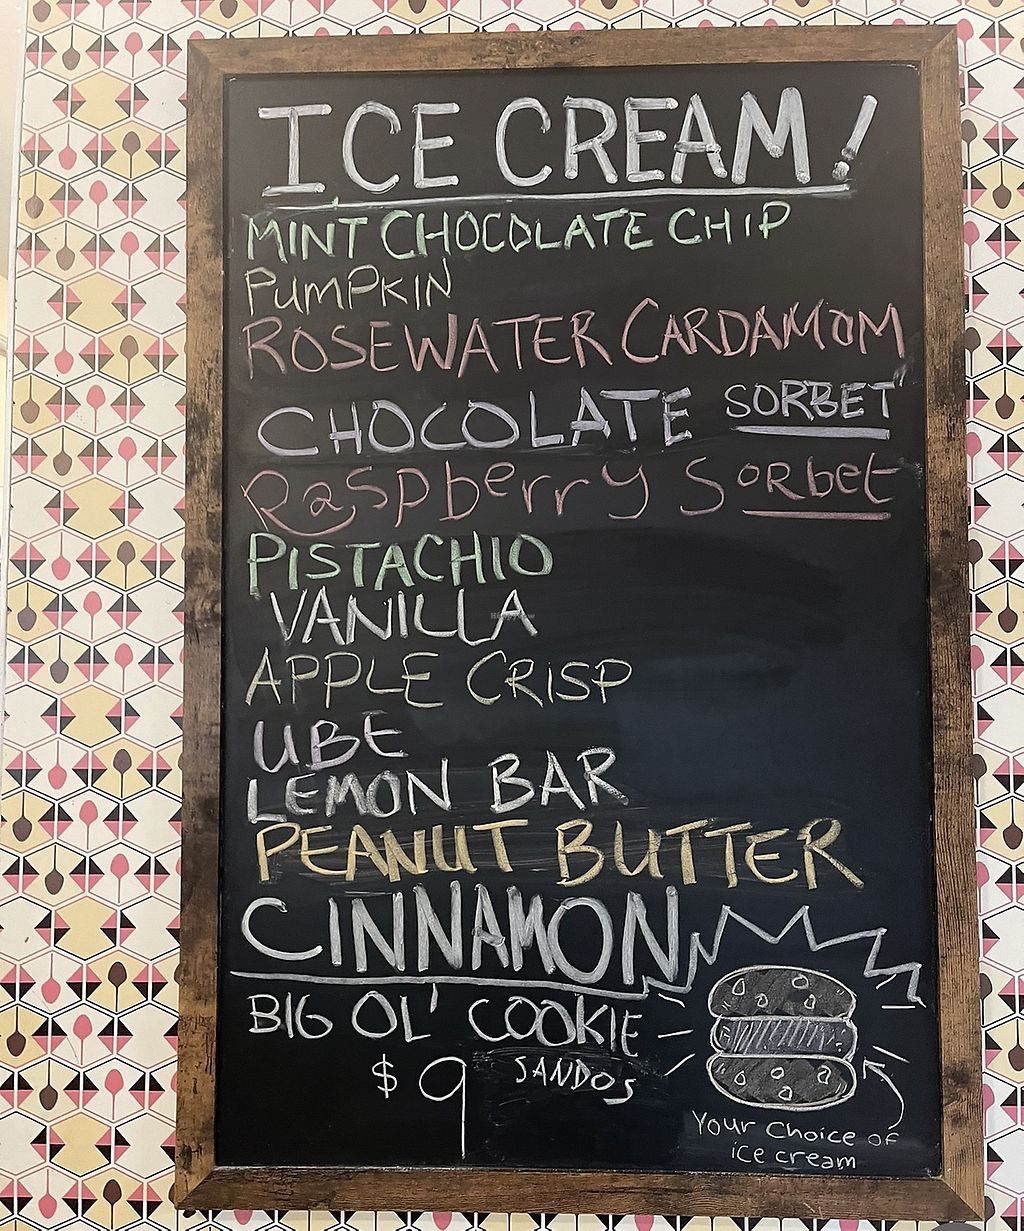 ICE CREAM!
MINT CHOCOLATE CHIP
PUMPKIN
ROSEWATER CARDAMOM
CHOCOLATE SORBET
Raspberry Sorbet
PISTACHIO
VANILLA
APPLE CRISP
UBE
LEMON BAR
PEANUT BUTTER
CINNAMON
BIG OL' COOKIE
$9 SANDOS
Your Choice of
ice cream